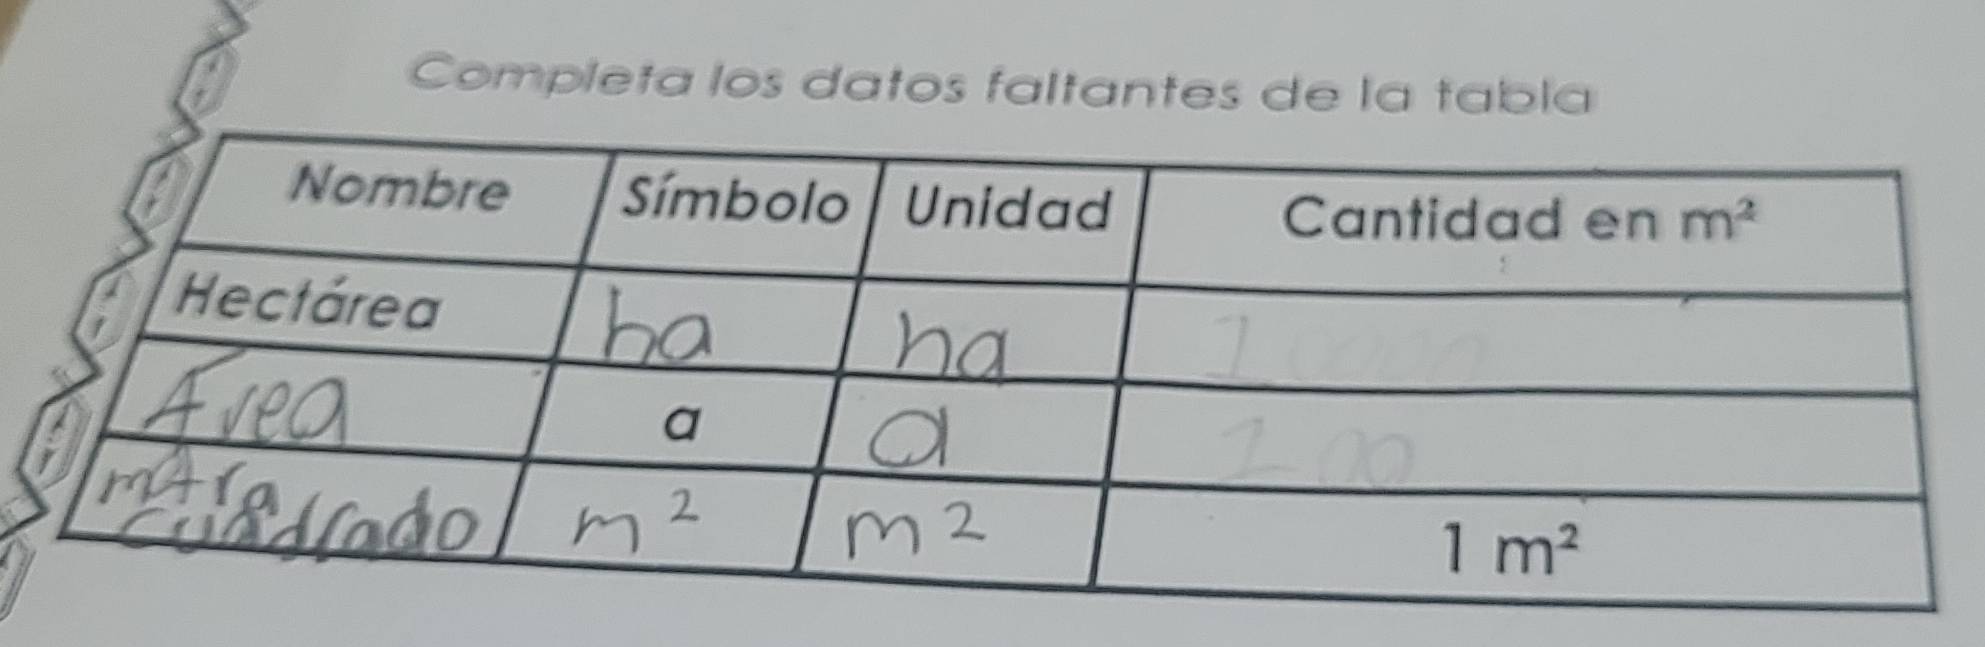 Completa los datos faltantes de la tabla
Nombre Símbolo Unidad Cantidad en m²
Hectárea ha ha
Área a a 100
m² m² 1 m²
cuadrado